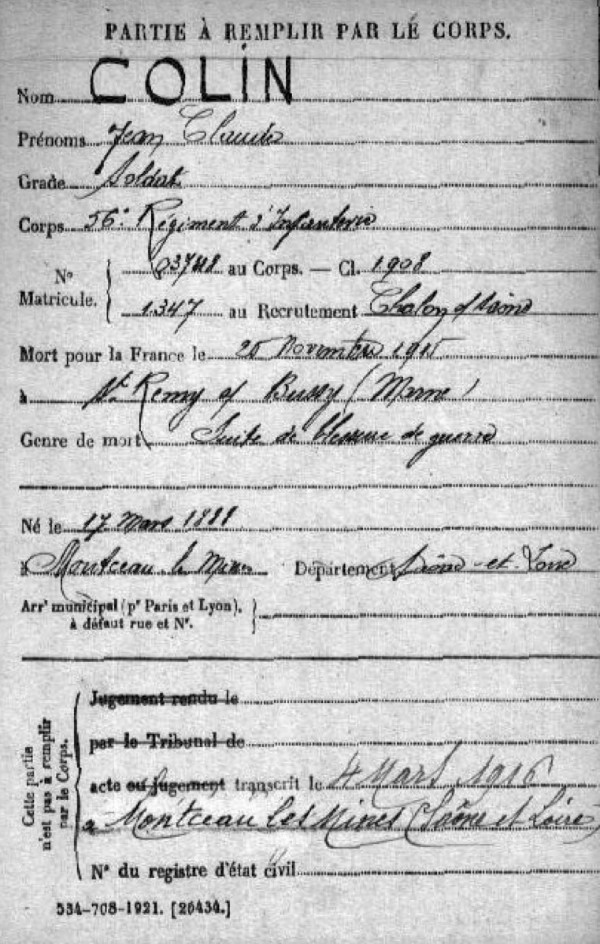 PARTIE À REMPLIR PAR LE CORPS.
Nom COLIN
Prénoms Jean Claude
Grade Soldat
Corps 56e Régiment d'Infanterie
N° Matricule. 03748 au Corps. — Cl. 1908
1347 au Recrutement Chalon s/ Saône
Mort pour la France le 25 Novembre 1915
à St Remy s/ Bussy (Marne)
Genre de mort Suite de blessure de guerre
Né le 17 Mars 1888
à Montceau les Mines Département Saône-et-Loire
Arrt municipal (pr Paris et Lyon),
à défaut rue et N°.
Cette partie n'est pas à remplir par le Corps.
Jugement rendu le
par le Tribunal de
acte ou jugement transcrit le 4 Mars 1916
à Montceau les Mines (Saône et Loire)
N° du registre d'état civil
534-708-1921. [26434.]